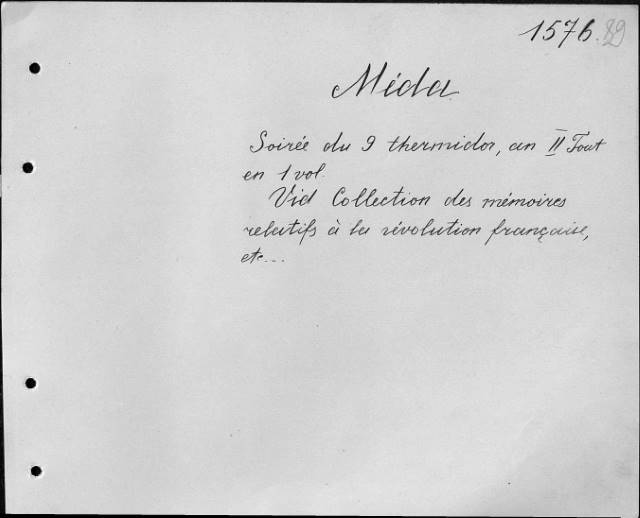 1576.89
Méda
Soirée du 9 thermidor, an II Tout
en 1 vol.
Vid Collection des mémoires
relatifs à la révolution française,
etc...